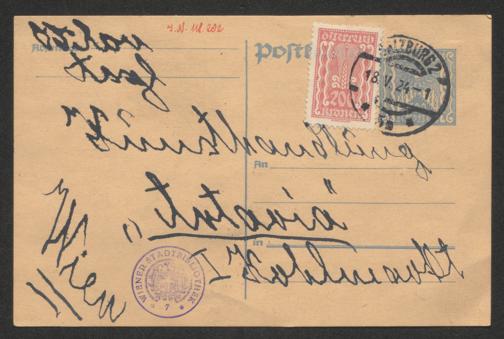 J.N. 111.202
Postk
Österreich
200
Kronen
SALZBURG 2
18.V.24-1
Kunsthandlung
An
„Artaria"
in
I Kohlmarkt
Wien
WIENER STADTBIBLIOTHEK
7